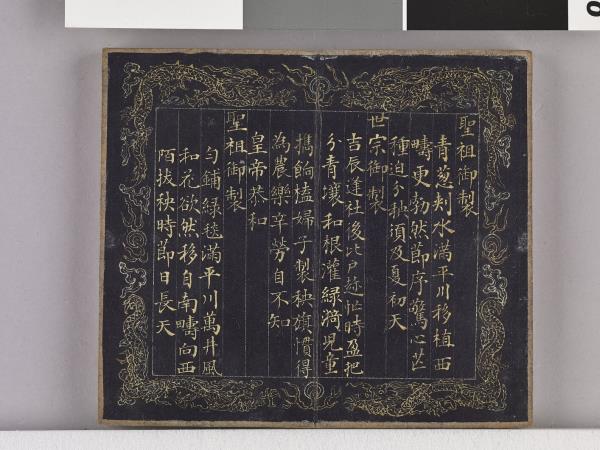 聖祖御製
青葱刺水滿平川移植西
疇更勃然節序驚心芒
種迫分秧須及夏初天
世宗御製
吉辰逢社後比戶趂忙時盈把
分青壤和根灌綠漪兒童
擕餉榼婦子製秧旗慣得
為農樂辛勞自不知
皇帝恭和
聖祖御製
勻鋪綠毯滿平川萬井風
和花欲然移自南疇向西
陌拔秧時節日長天